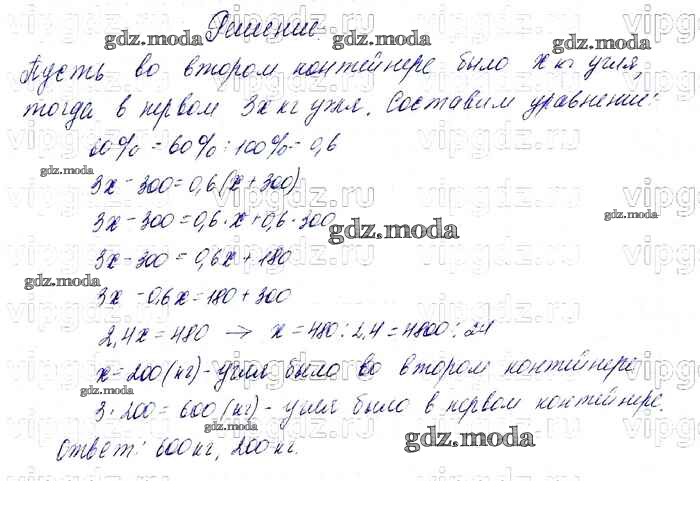 Решение.
Пусть во втором контейнере было x кг угля,
тогда в первом 3x кг угля. Составим уравнение:
60% = 60% : 100% = 0,6
3x - 300 = 0,6(x + 300)
3x - 300 = 0,6 · x + 0,6 · 300
3x - 300 = 0,6x + 180
3x - 0,6x = 180 + 300
2,4x = 480 → x = 480 : 2,4 = 4800 : 24
x = 200 (кг) - угля было во втором контейнере
3 · 200 = 600 (кг) - угля было в первом контейнере.
Ответ: 600 кг, 200 кг.
gdz.moda
gdz.moda
gdz.moda
gdz.moda
gdz.moda
gdz.moda
gdz.moda
gdz.moda
gdz.moda
vipgdz.ru
vipgdz.ru
vipgdz.ru
vipgdz.ru